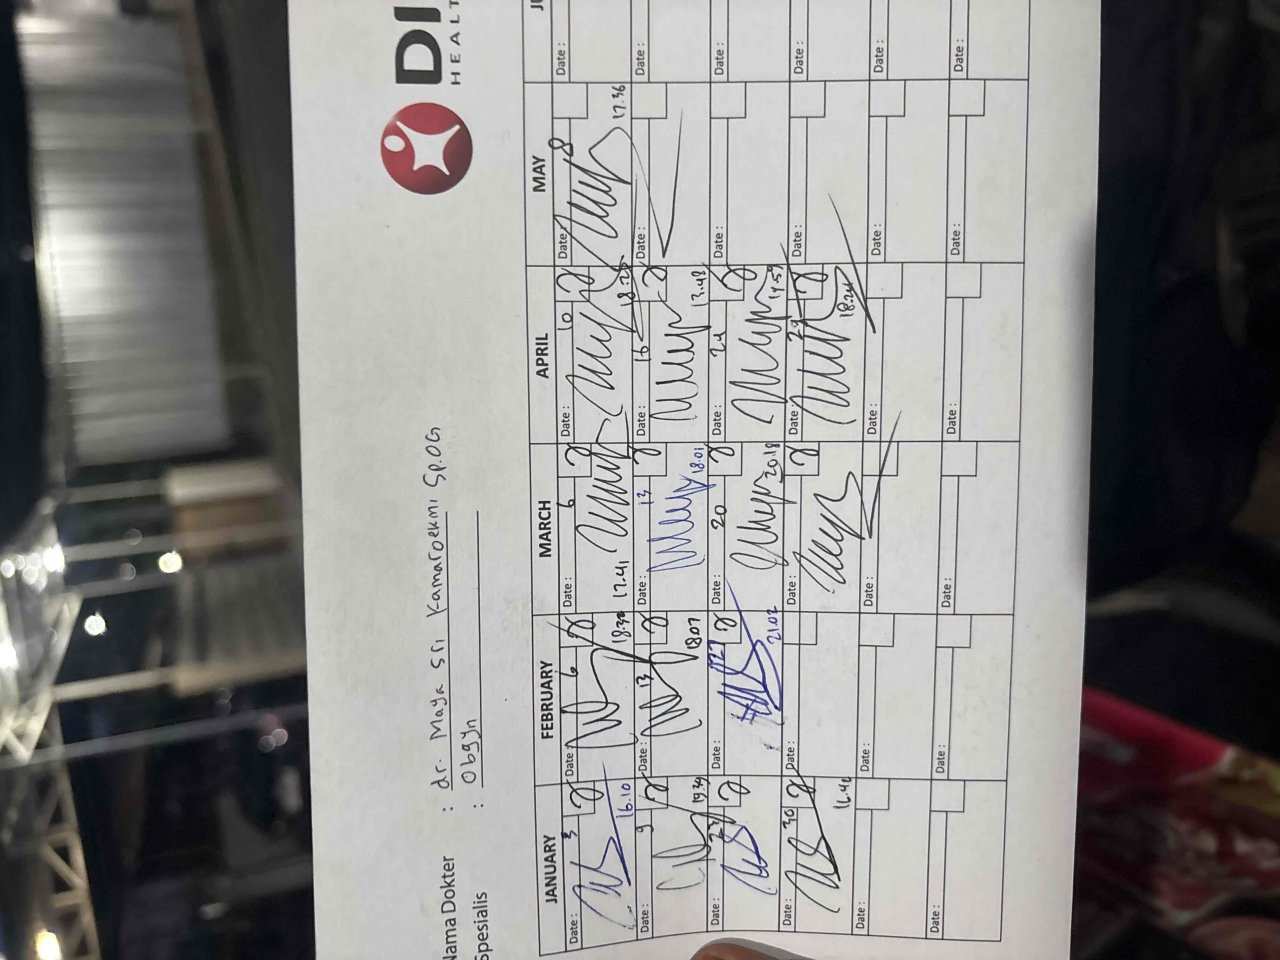 DI
HEALT
Nama Dokter : dr. Maya Sri Kamaroekmi Sp.OG
Spesialis : Obgyn
JANUARY FEBRUARY MARCH APRIL MAY
Date : 3 Date : 6 Date : 6 Date : 10 Date : 8 Date :
16.10 18.32 17.41 18.26 17.36
Date : 9 Date : 13 Date : 13 Date : 16 Date : Date :
19.39 18.07 18.01 13.48
Date : 23 Date : 27 Date : 20 Date : 24 Date : Date :
21.02 20.18 14.59
Date : 30 Date : Date : Date : 29 Date : Date :
16.41 18.24
Date : Date : Date : Date : Date : Date :
Date : Date : Date : Date : Date : Date :